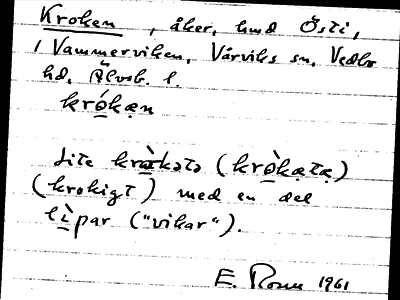 Kroken, åker, hmd Östi,
i Vammerviken, Vårviks sn, Vedbo
hd, Älvsb. l.
krókạn
lite krà̱kətə (krò̱kạtạ)
(krokigt) med en del
lì̱par ("vikar").
E. Rosun 1961